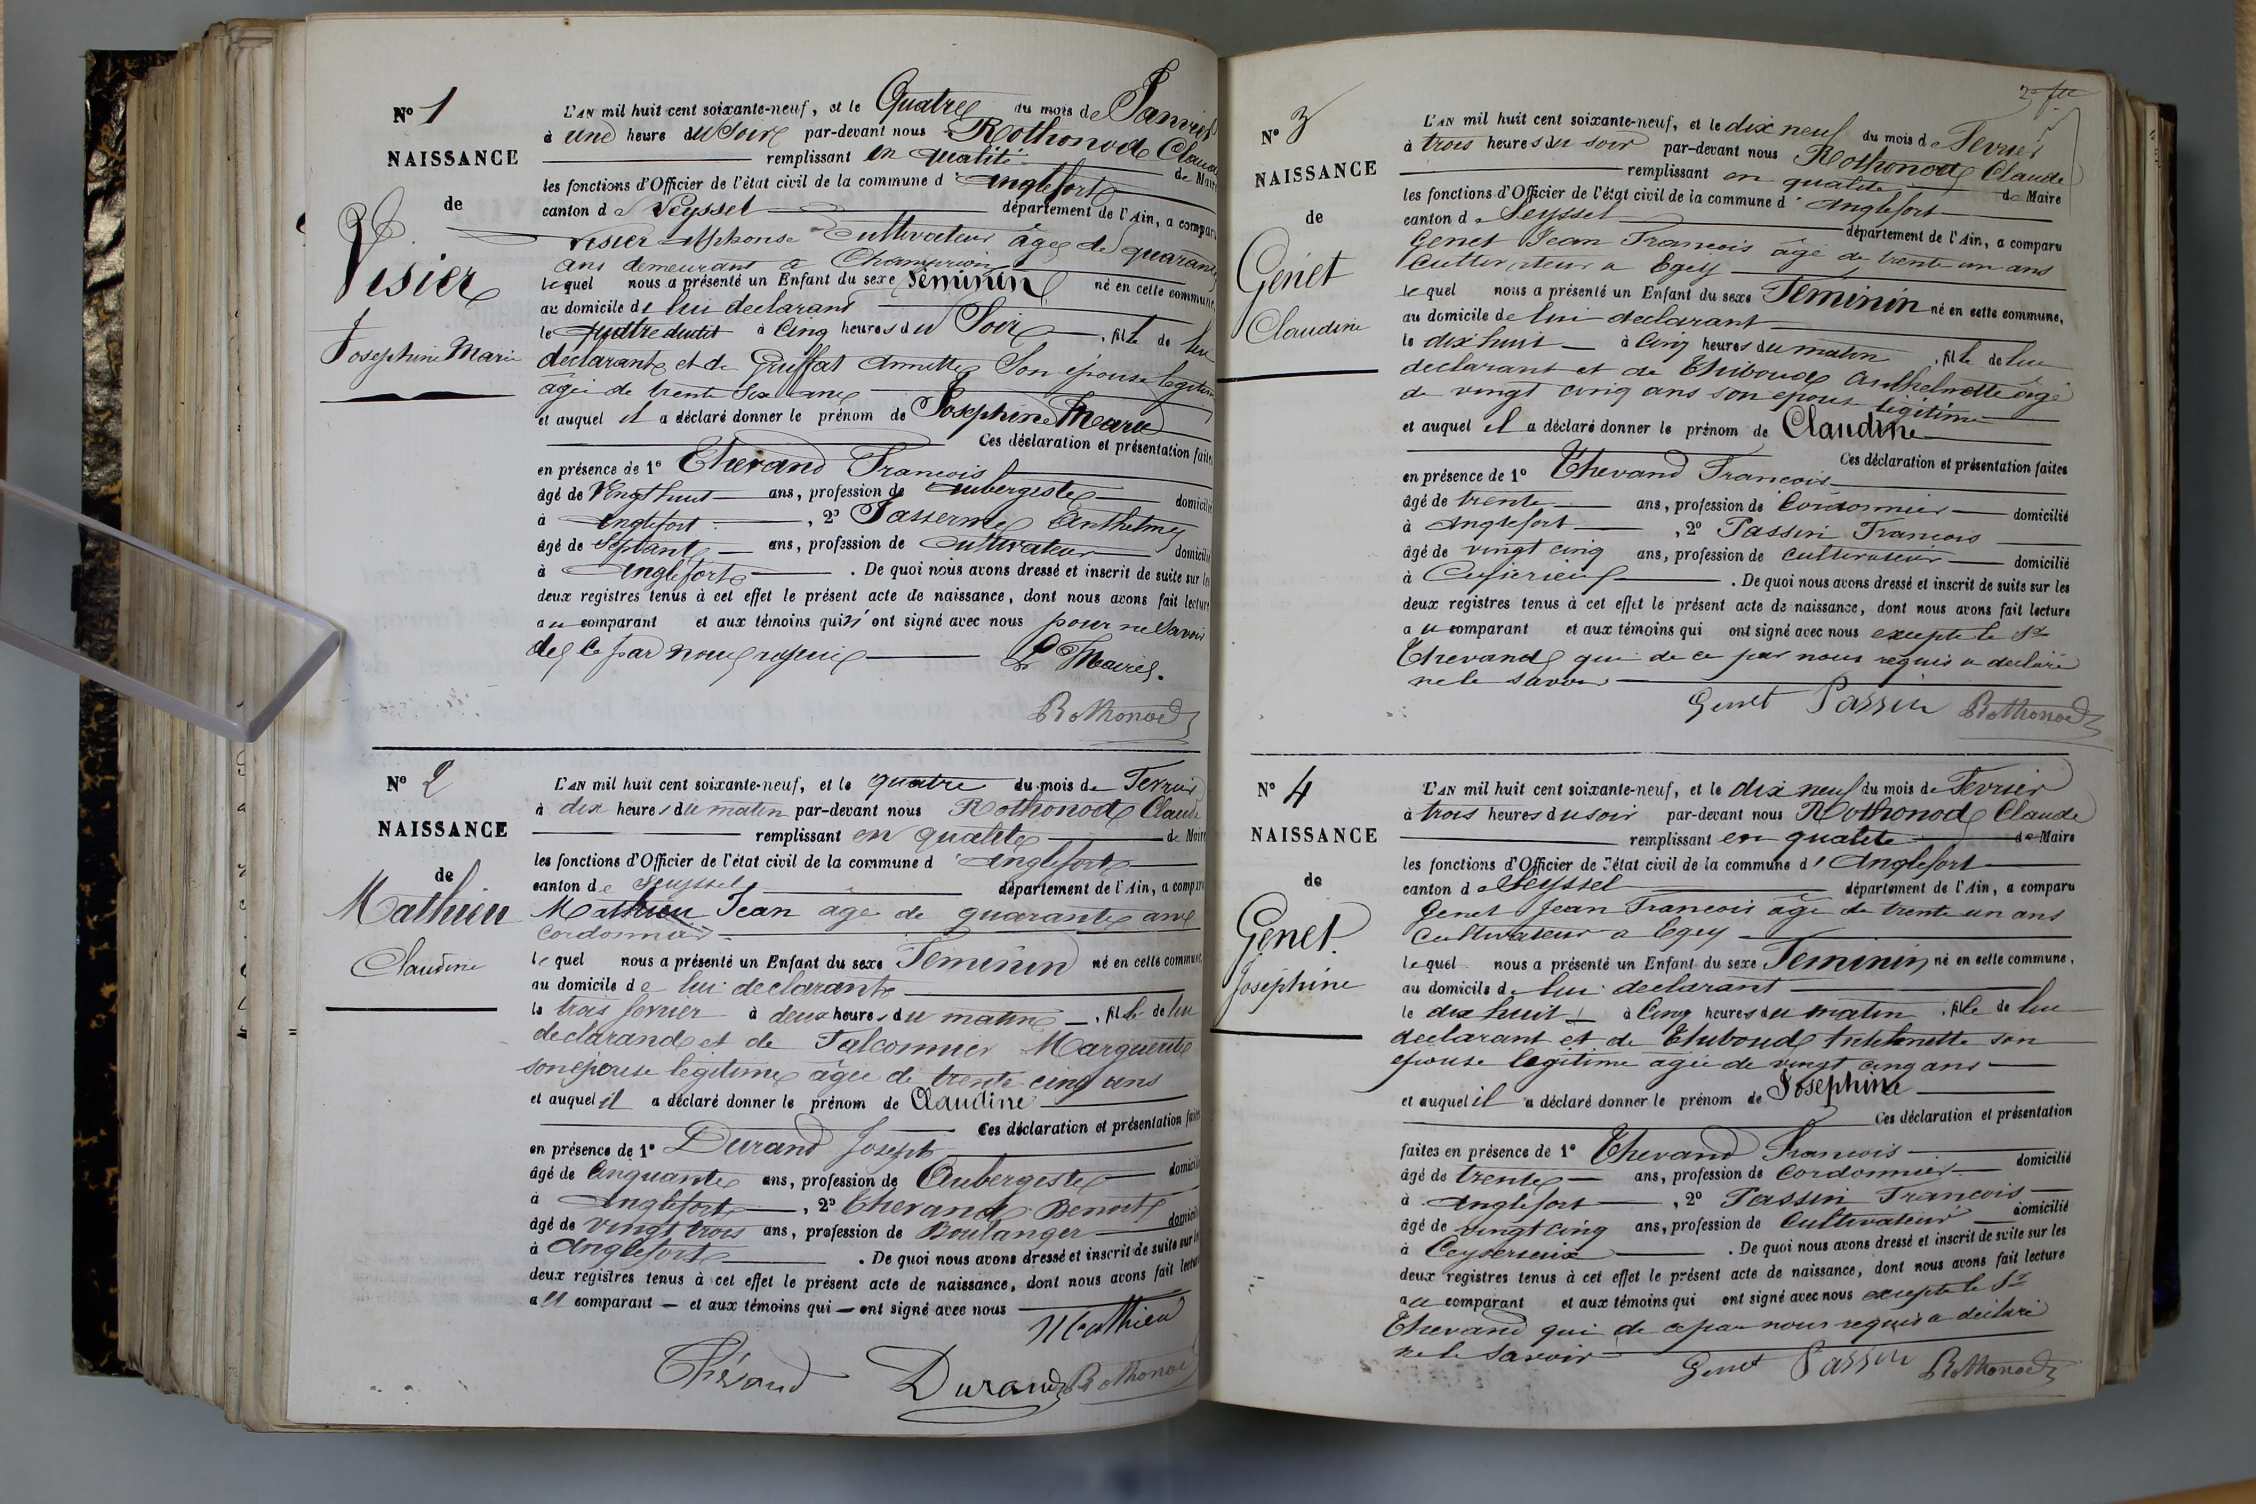 No 1
NAISSANCE
de
Visier
Josephine Marie
L'AN mil huit cent soixante-neuf, et le Quatre du mois de Janvier
à une heure du Soir par-devant nous Rothonod Claude
remplissant en qualité de Maire
les fonctions d'Officier de l'état civil de la commune d'Anglefort
canton de Seyssel département de l'Ain, a comparu
Visier Alphonse Cultivateur âgé de quarante
ans demeurant a
lequel nous a présenté un Enfant du sexe Féminin né en cette commune,
au domicile de lui declarant
le quatre dudit à Cinq heures du Soir, fille de lui
declarant et de Gruffat Annette Son épouse légitime
agée de trente Six ans
et auquel il a déclaré donner le prénom de Josephine Marie
Ces déclaration et présentation faites
en présence de 1o Thevand Francois
âgé de Vingt huit ans, profession de aubergiste domicilié
à Anglefort, 2o Passerme Anthelme
âgé de Septante ans, profession de Cultivateur domicilié
à Anglefort. De quoi nous avons dressé et inscrit de suite sur les
deux registres tenus à cet effet le présent acte de naissance, dont nous avons fait lecture
au comparant et aux témoins qui n'ont signé avec nous pour ne Savoir
de ce par nous requis Le Maire.
Rothonod
No 2
NAISSANCE
de
Mathieu
Claudine
L'AN mil huit cent soixante-neuf, et le quatre du mois de Fevrier
à dix heures du matin par-devant nous Rothonod Claude
remplissant en qualité de Maire
les fonctions d'Officier de l'état civil de la commune d'Anglefort
canton de Seyssel département de l'Ain, a comparu
Mathieu Jean agé de quarante ans
cordonnier
lequel nous a présenté un Enfant du sexe Feminin né en cette commune,
au domicile de lui declarant
le trois fevrier à deux heures du matin, fille de lui
declarand et de Falconnier Marguerite
son épouse legitime agée de trente cinq ans
et auquel il a déclaré donner le prénom de Claudine
Ces déclaration et présentation faites
en présence de 1o Durand Joseph
âgé de Cinquante ans, profession de Aubergiste domicilié
à Anglefort, 2o Thevand Benoit
âgé de vingt trois ans, profession de Boulanger domicilié
à Anglefort. De quoi nous avons dressé et inscrit de suite sur les
deux registres tenus à cet effet le présent acte de naissance, dont nous avons fait lecture
au comparant et aux témoins qui ont signé avec nous
Mathieu
Thévand Durand Rothonod
No 3
NAISSANCE
de
Genet
Claudine
L'AN mil huit cent soixante-neuf, et le dix neuf du mois de Fevrier
à trois heures du soir par-devant nous Rothonod Claude
remplissant en qualité de Maire
les fonctions d'Officier de l'état civil de la commune d'Anglefort
canton de Seyssel département de l'Ain, a comparu
Genet Jean Francois âgé de trente un ans
Cultivateur a Egey
lequel nous a présenté un Enfant du sexe Féminin né en cette commune,
au domicile de lui declarant
le dix huit à Cinq heures du matin, fille de lui
declarant et de Thiboud Anthelmette agé
de vingt cinq ans son epouse légitime
et auquel il a déclaré donner le prénom de Claudine
Ces déclaration et présentation faites
en présence de 1o Thevand Francois
âgé de trente ans, profession de Cordonnier domicilié
à Anglefort, 2o Passin Francois
âgé de vingt cinq ans, profession de cultivateur domicilié
à. De quoi nous avons dressé et inscrit de suite sur les
deux registres tenus à cet effet le présent acte de naissance, dont nous avons fait lecture
au comparant et aux témoins qui ont signé avec nous excepte le Sr
Thevand qui de ce par nous requis a declaré
ne le savoir
Genet Passin Rothonod
No 4
NAISSANCE
de
Genet
Josephine
L'AN mil huit cent soixante-neuf, et le dix neuf du mois de Fevrier
à trois heures du soir par-devant nous Rothonod Claude
remplissant en qualité de Maire
les fonctions d'Officier de l'état civil de la commune d'Anglefort
canton de Seyssel département de l'Ain, a comparu
Genet Jean Francois âgé de trente un ans
Cultivateur a Egey
lequel nous a présenté un Enfant du sexe Féminin né en cette commune,
au domicile de lui declarant
le dix huit à Cinq heures du matin, fille de lui
declarant et de Thiboud Anthelmette son
epouse legitime agée de vingt cinq ans
et auquel il a déclaré donner le prénom de Josephine
Ces déclaration et présentation
faites en présence de 1o Thevand Francois
âgé de trente ans, profession de Cordonnier domicilié
à Anglefort, 2o Passin Francois
âgé de vingt cinq ans, profession de Cultivateur domicilié
à Ceyserieux. De quoi nous avons dressé et inscrit de suite sur les
deux registres tenus à cet effet le présent acte de naissance, dont nous avons fait lecture
au comparant et aux témoins qui ont signé avec nous excepte le Sr
Thevand qui de ce par nous requis a declaré
ne le Savoir
Genet Passin Rothonod